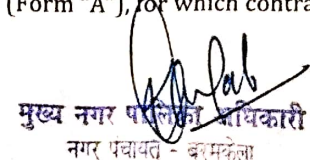 (Form "A"), for which contra
मुख्य नगर पालिका अधिकारी
नगर पंचायत - बरमकेला